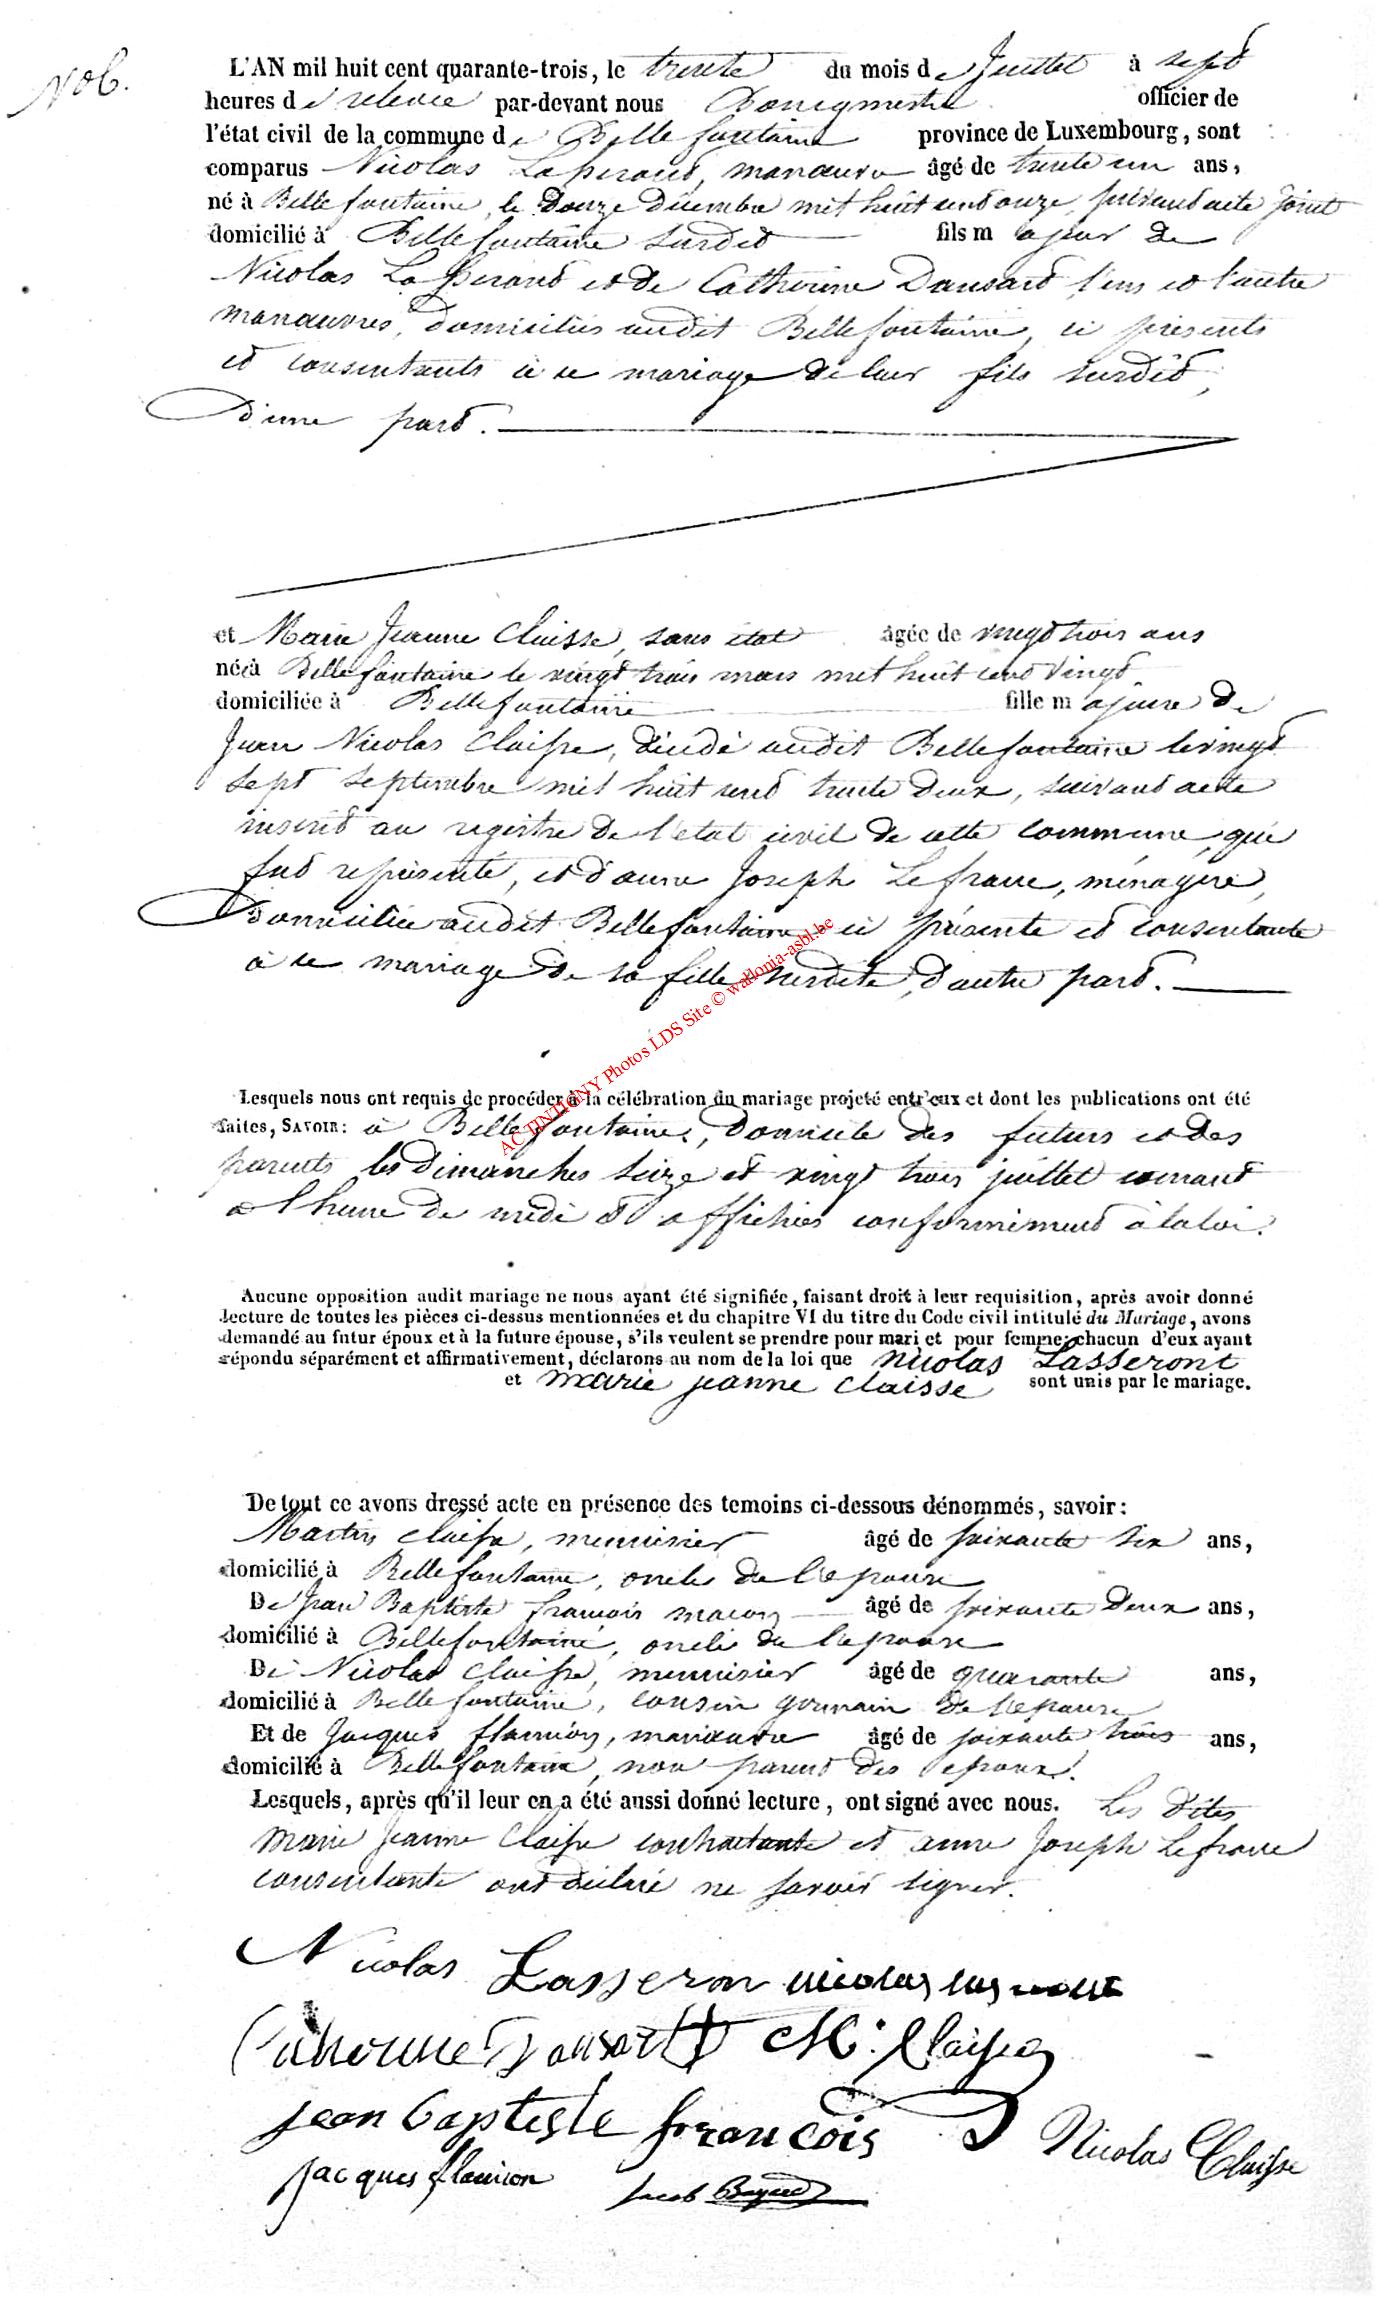 No 6.
L'AN mil huit cent quarante-trois, le trente du mois de Juillet à sept
heures de relevée par-devant nous Bourgmestre officier de
l'état civil de la commune de Bellefontaine province de Luxembourg, sont
comparus Nicolas Lasserand, manœuvre âgé de trente un ans,
né à Bellefontaine, le douze décembre mil huit cent onze, suivant acte joint
domicilié à Bellefontaine susdit fils majeur de
Nicolas Lasserand et de Catherine Dansard l'un et l'autre
manœuvres, domiciliés audit Bellefontaine, ci présents
et consentants à ce mariage de leur fils susdit,
d'une part.
et Marie Jeanne Claisse, sans état âgée de vingt trois ans
née à Bellefontaine le vingt trois mars mil huit cent vingt
domiciliée à Bellefontaine fille majeure de
Jean Nicolas Claisse, décédé audit Bellefontaine le vingt
sept septembre mil huit cent trente deux, suivant acte
inscrit au registre de l'état civil de cette commune, qui
fut représenté, et d'anne Joseph Lefranc, ménagère,
domiciliée audit Bellefontaine ci présente et consentante
à ce mariage de sa fille susdite, d'autre part.
Lesquels nous ont requis de procéder à la célébration du mariage projeté entr'eux et dont les publications ont été
faites, SAVOIR: à Bellefontaine, domicile des futurs et des
parents les dimanches seize et vingt trois juillet courant
à l'heure de midi et affichées conformément à la loi.
Aucune opposition audit mariage ne nous ayant été signifiée, faisant droit à leur requisition, après avoir donné
lecture de toutes les pièces ci-dessus mentionnées et du chapitre VI du titre du Code civil intitulé du Mariage, avons
demandé au futur époux et à la future épouse, s'ils veulent se prendre pour mari et pour femme; chacun d'eux ayant
répondu séparément et affirmativement, déclarons au nom de la loi que Nicolas Lasseront
et marie jeanne claisse sont unis par le mariage.
De tout ce avons dressé acte en présence des temoins ci-dessous dénommés, savoir:
Martin Claisse, menuisier âgé de soixante six ans,
domicilié à Bellefontaine, oncle de l'epouse
De Jean Baptiste françois maçon âgé de soixante deux ans,
domicilié à Bellefontaine, oncle de l'epouse
De Nicolas Claisse, menuisier âgé de quarante ans,
domicilié à Bellefontaine, cousin germain de l'epouse
Et de Jacques flamion, manœuvre âgé de soixante trois ans,
domicilié à Bellefontaine, non parent des epoux.
Lesquels, après qu'il leur en a été aussi donné lecture, ont signé avec nous. Les dites
Marie Jeanne Claisse contractante et anne Joseph Lefranc
consentante ont déclaré ne savoir signer.
Nicolas Lasseron nicolas
Catherine Dansartt M. Claisse
jean baptiste francois Nicolas Claisse
jacques flamion Jacob
ACTINTIGNY Photos LDS Site © wallonia-asbl.be